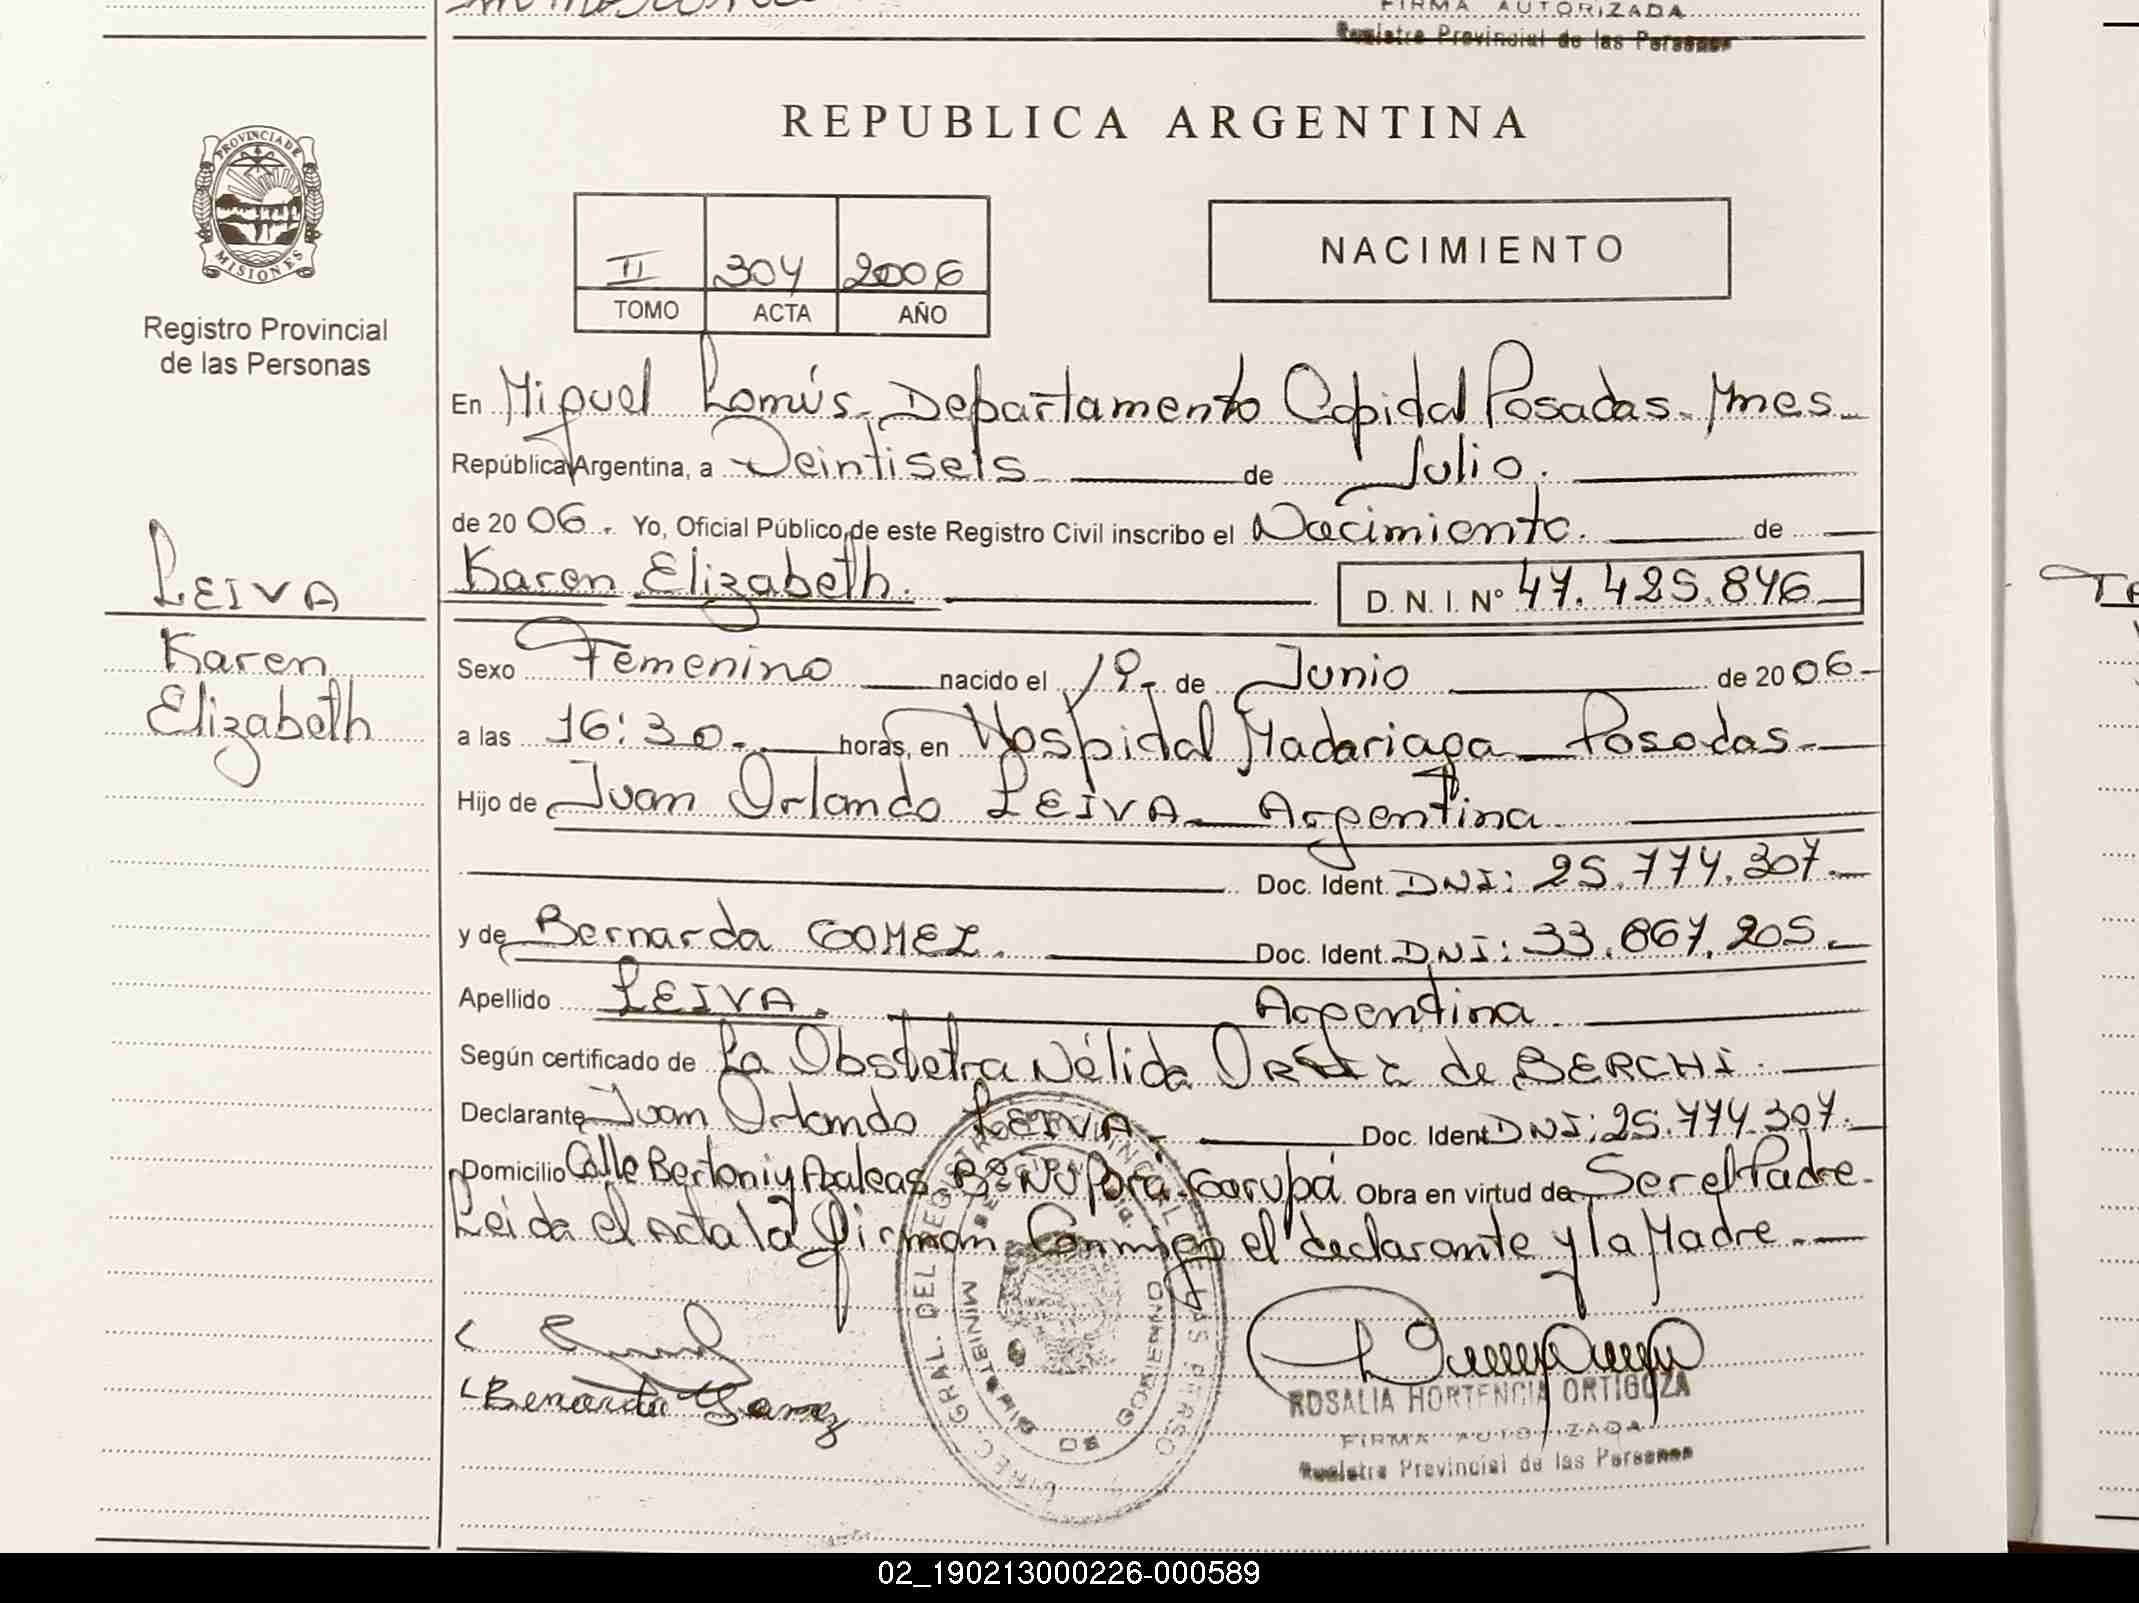 FIRMA AUTORIZADA
Registro Provincial de las Personas
PROVINCIA DE
MISIONES
Registro Provincial
de las Personas
REPUBLICA ARGENTINA
II 304 2006
TOMO ACTA AÑO
NACIMIENTO
En Miguel Lomús. Departamento Capital Posadas. Mnes
República Argentina, a Veintiseis de Julio.
de 20 06. Yo, Oficial Público de este Registro Civil inscribo el Nacimiento. de
Karen Elizabeth. D. N. I. N° 47.425.846
LEIVA
Karen
Elizabeth
Sexo Femenino nacido el 19 de Junio de 20 06
a las 16:30 horas, en Hospital Madariaga Posadas
Hijo de Juan Orlando LEIVA Argentina
Doc. Ident. DNI: 25.774.307
y de Bernarda GOMEZ. Doc. Ident. DNI: 33.867.205
Apellido LEIVA. Argentina
Según certificado de La Obstetra Nélida de BERCHI.
Declarante Juan Orlando LEIVA Doc. Ident DNI: 25.774.307
Domicilio Calle Bertoni y Azaleas Porá. Garupá Obra en virtud de Ser el Padre
Leida el Acta la firman Conmigo el declarante y la Madre
Bernarda Gomez
ROSALIA HORTENCIA ORTIGOZA
FIRMA AUTORIZADA
Registro Provincial de las Personas
02_190213000226-000589